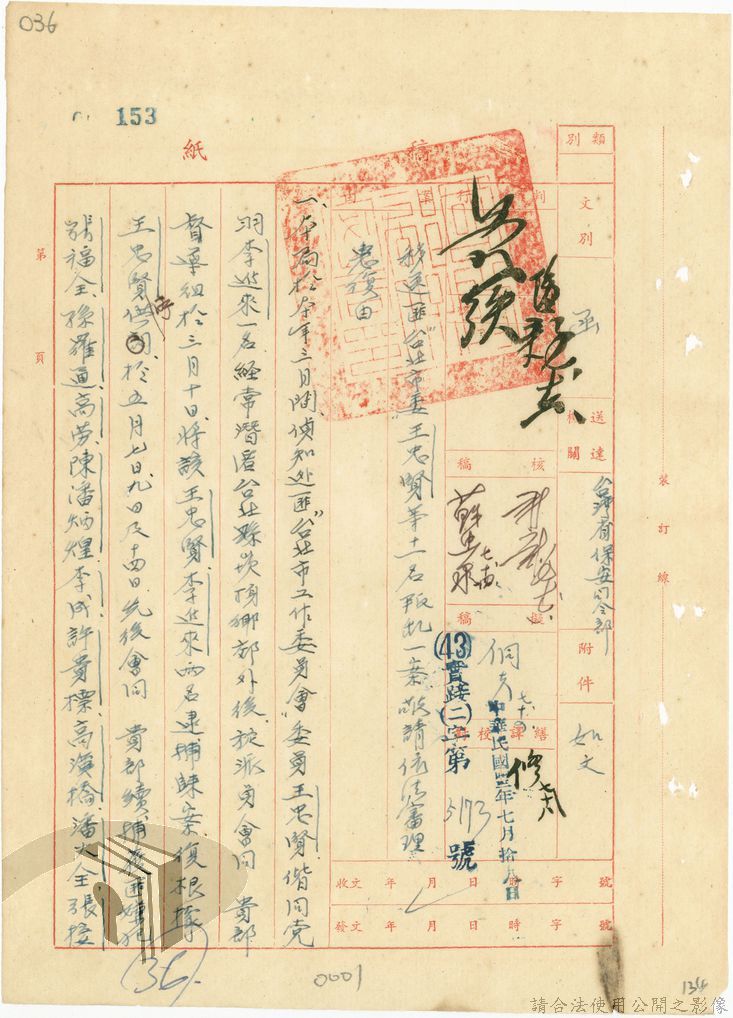 036
153
稿
紙
類別
文別
函
送達機關
台灣省保安司令部
附件
如文
判
核稿
擬稿
繕譯校對
中華民國 年七月拾八日
(43)實踐(二)字第5173號
收文 年 月 日 時 字 號
發文 年 月 日 時 字 號
裝訂線
移送匪"台北市委"王忠賢等十一名叛亂一案敬請依法審理
惠復由
一、本局於本年三月間偵知逃匪"台北市工作委員會"委員王忠賢偕同党
羽李進來一名經常潛匿台北縣崁頂鄉郊外後按派員會同 貴部
督導組於三月十日將該王忠賢、李進來两名逮捕歸案復根據
王忠賢供 於五月七日、九日及十四日先後會同 貴部續捕
張福全、孫羅通、高勞、陳潘炳煌、李成、許貴標、高濱橋、潘 全、張
第 頁
(36).
0001
134
請合法使用公開之影像